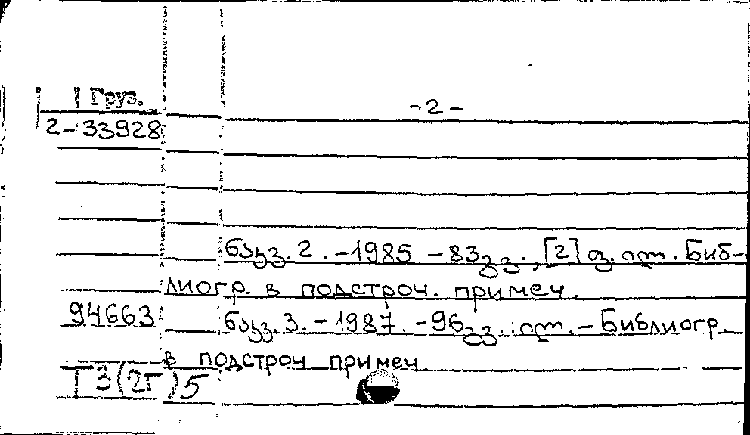 Груз. -2-
2-33928
2. -1985 -83გვ., [2] ილ. Биб-
лиогр. в подстроч. примеч.
94663 3. -1987. -96გვ.: ილ. -Библиогр.
в подстроч примеч
Г3(2Г)5